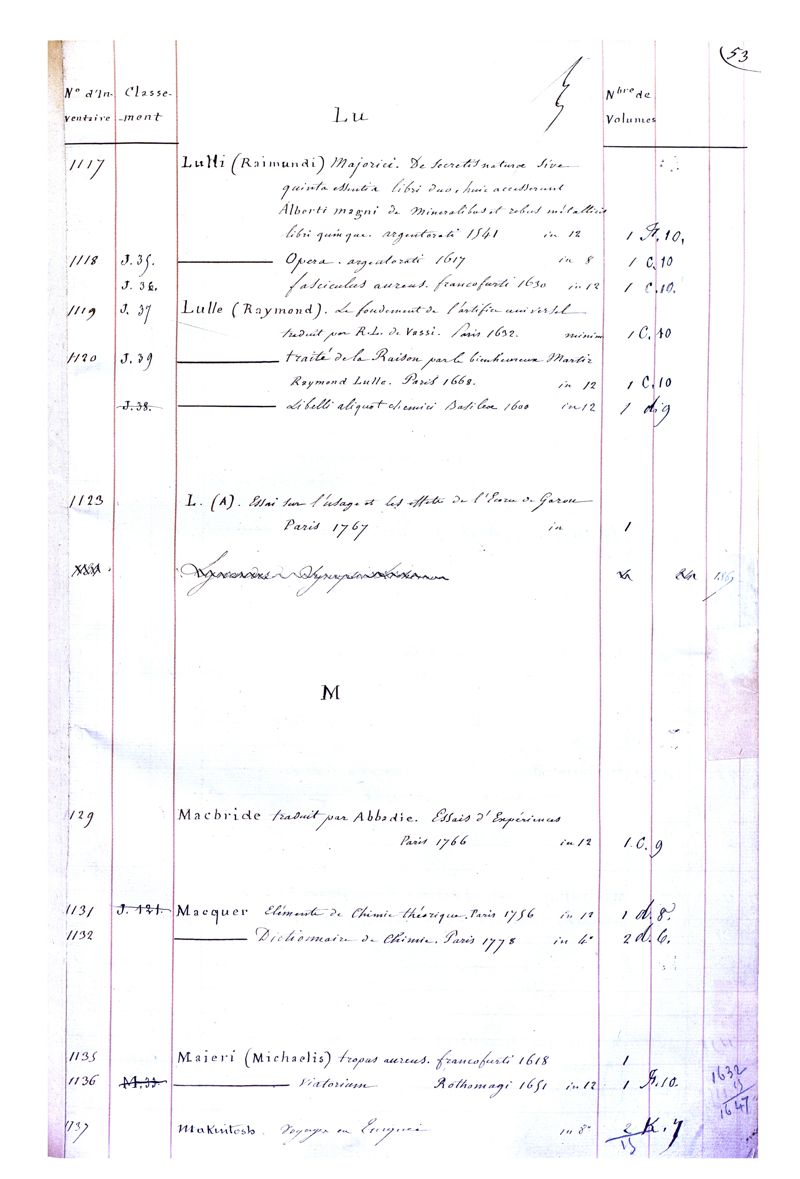 53
N° d'In- Classe- Nbre de
ventaire -ment Lu Volumes
1117 Lulli (Raimundi) Majorici. De secretis naturæ sive
quinta essentia libri duo, huic accesserunt
Alberti magni de Mineralibus et rebus métallicis
libri quinque. argentorati 1541 in 12 1 F. 10.
1118 J. 35. ——— Opera. argentorati 1617 in 8 1 C. 10
J. 36. fasciculus aureus. francofurti 1630 in 12 1 C. 10.
1119 J. 37 Lulle (Raymond). Le fondement de l'artifice universel
traduit par R. L. de Vassi. Paris 1632. minim 1 C. 10
1120 J. 39 ——— traité de la Raison par le bienheureux Martir
Raymond Lulle. Paris 1668. in 12 1 C. 10
J. 38. ——— Libelli aliquot chemici Basileæ 1600 in 12 1 d. 9
1123 L. (A). Essai sur l'usage et les effets de l'Ecorce de Garou
Paris 1767 in 1
M
129 Macbride traduit par Abbadie. Essais d'Expériences
Paris 1766 in 12 1. C. 9
1131 J. 121. Macquer Eléments de Chimie théorique. Paris 1756 in 12 1 d. 8.
1132 ——— Dictionnaire de Chimie. Paris 1778 in 4° 2 d. 6.
1135 Majeri (Michaelis) tropus aureus. francofurti 1618 1
1136 M. 33. ——— Viatorium Rothomagi 1651 in 12 1 F. 10.
1632
15
1647
1137 Makintosh. Voyages en Turquie in 8° 2 K. 7
15